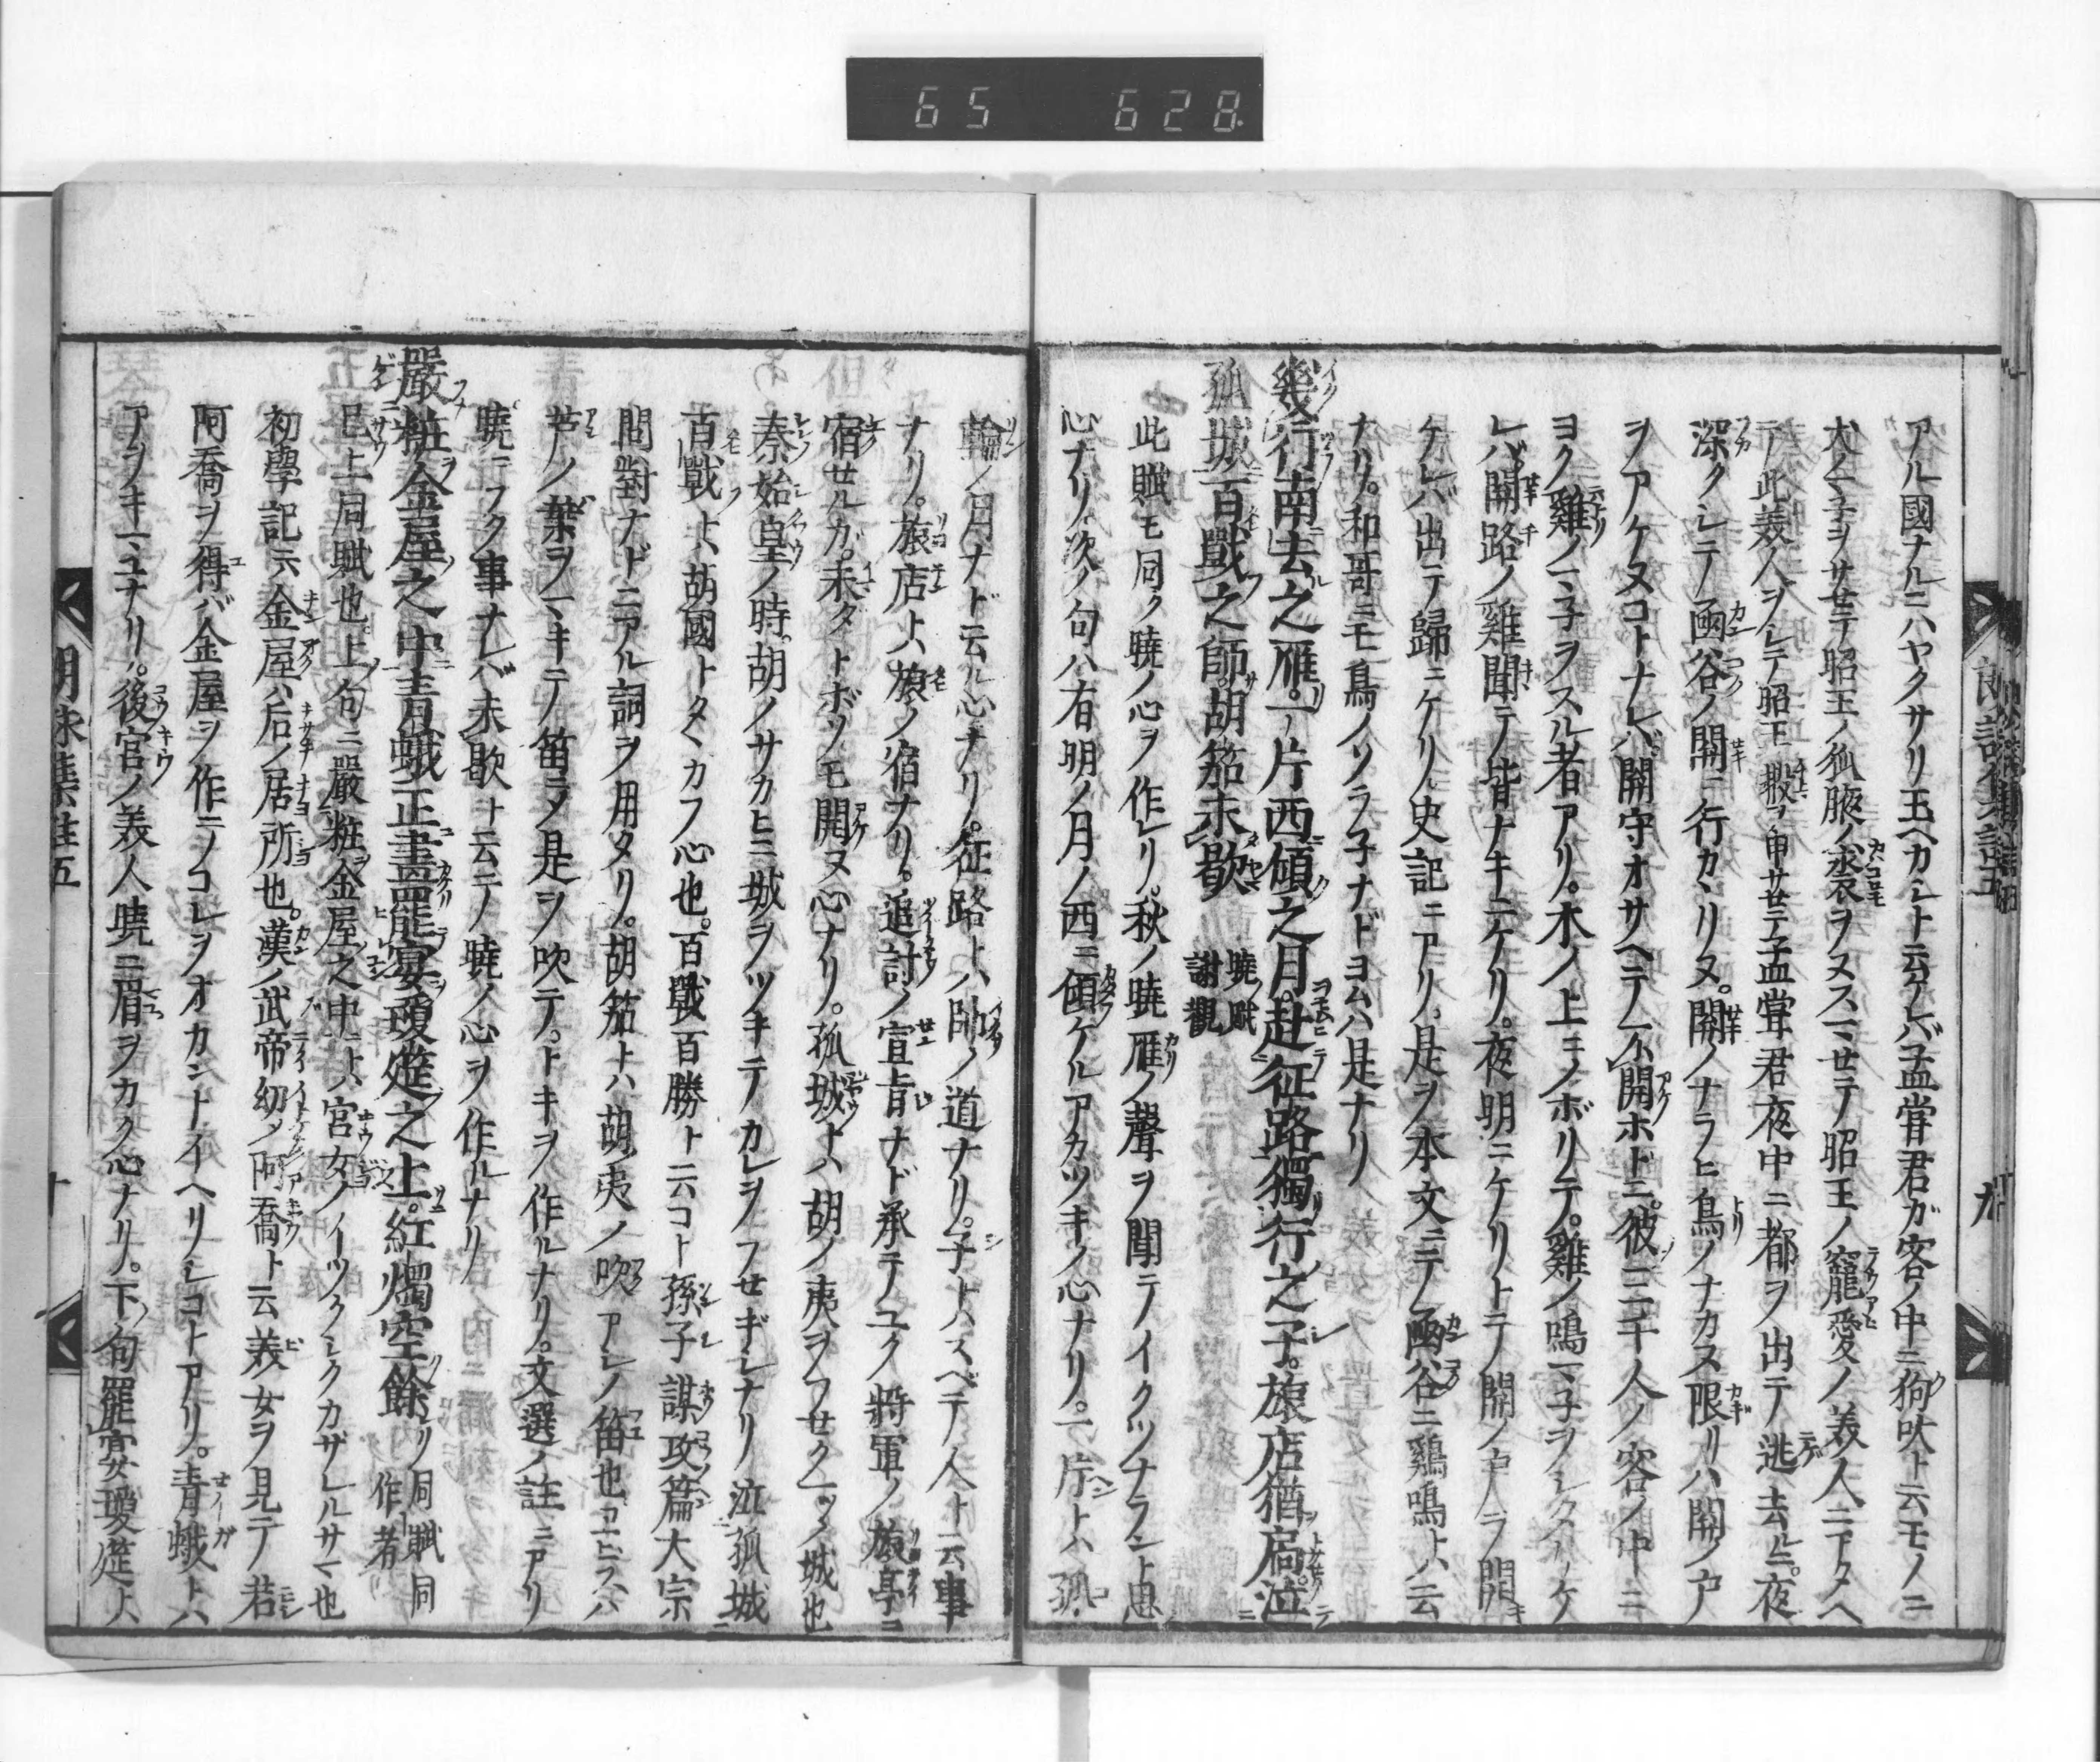 65 628
アル國ナルニハヤクサリ玉ヘカシト云ケレバ孟甞君ガ客ノ中ニ狗吠ト云モノニ
犬ノマ子ヲサセテ昭王ノ狐腋ノ裘ヲヌスマせテ昭王ノ寵愛ノ美人ニアタヘ
テ此美人ヲシテ昭王ニ申サせテ孟甞君夜中ニ都ヲ出テ逃去ルニ。夜
深クシテ凾谷ノ關ニ行カヽリヌ。關ノナラヒ鳥ノナカヌ限リハ關ノ戸
ヲアケヌコトナレバ關守オサヘテ不開ホドニ。彼三千人ノ客ノ中ニ
ヨク雞ノマ子ヲスル者アリ。木ノ上ニノボリテ。雞ノ鳴マ子ヲシタリケ
レバ關路ノ雞聞テ皆ナキニケリ。夜明ニケリトテ關ノ戸ヲ開
ケレバ出テ歸ニケリ。史記ニアリ。是ヲ本文ニテ凾谷ニ鷄鳴トハ云
ナリ。和哥ニモ鳥ノソラ子ナドヨムハ是ナリ
幾行南去之雁。一片西傾之月。赴征路獨行之子。旅店猶扃。泣
孤城百戰之師。胡笳未歇 曉賦 謝觀
此賦モ同ク曉ノ心ヲ作レリ。秋ノ曉雁ノ聲ヲ聞テイクツナラント思
心ナリ。次ノ句ハ有明ノ月ノ西ニ傾ケルアカツキノ心ナリ。一片トハ孤
輪ノ月ナド云ル心ナリ。征路トハ師ノ道ナリ。子トハスベテ人ト云事
ナリ。旅店トハ旅ノ宿ナリ。追討ノ宣旨ナド承テユク將軍ノ旅亭ニ
宿せルガ。未ダトボソモ開ヌ心ナリ。孤城トハ胡ノ夷ヲフせク一ツノ城也
秦始皇ノ時。胡ノサカヒニ城ヲツキテカレヲフせギシナリ 泣孤城
百戰ト 胡國トタヽカフ心也。百戰百勝ト云コト孫子謀攻篇大宗
問對ナドニアル詞ヲ用タリ。胡笳トハ胡夷ノ吹アシノ笛也
芦ノ葉ヲマキテ笛ヲメ是ヲ吹テ。トキヲ作ルナリ。文選ノ註ニアリ
曉ニフク事ナレバ未歇ト云テ曉ノ心ヲ作ルナリ
嚴粧金屋之中青蛾正畫。罷宴瓊筵之上。紅燭空餘 同賦同作者
已上同賦也 上ノ句ニ嚴粧金屋之中トハ宮女ノイツクシクカザレルサマ也
初學記云金屋ハ后ノ居所也。漢ノ武帝幼メ阿喬ト云美女ヲ見テ若
阿喬ヲ得バ金屋ヲ作テコレヲオカントイヘリシコトアリ。青蛾トハ
アヲキマユナリ。後宮ノ美人曉ニ眉ヲカク心ナリ。下句罷宴瓊筵ト
朗詠集註五
九
朗詠集註五
十